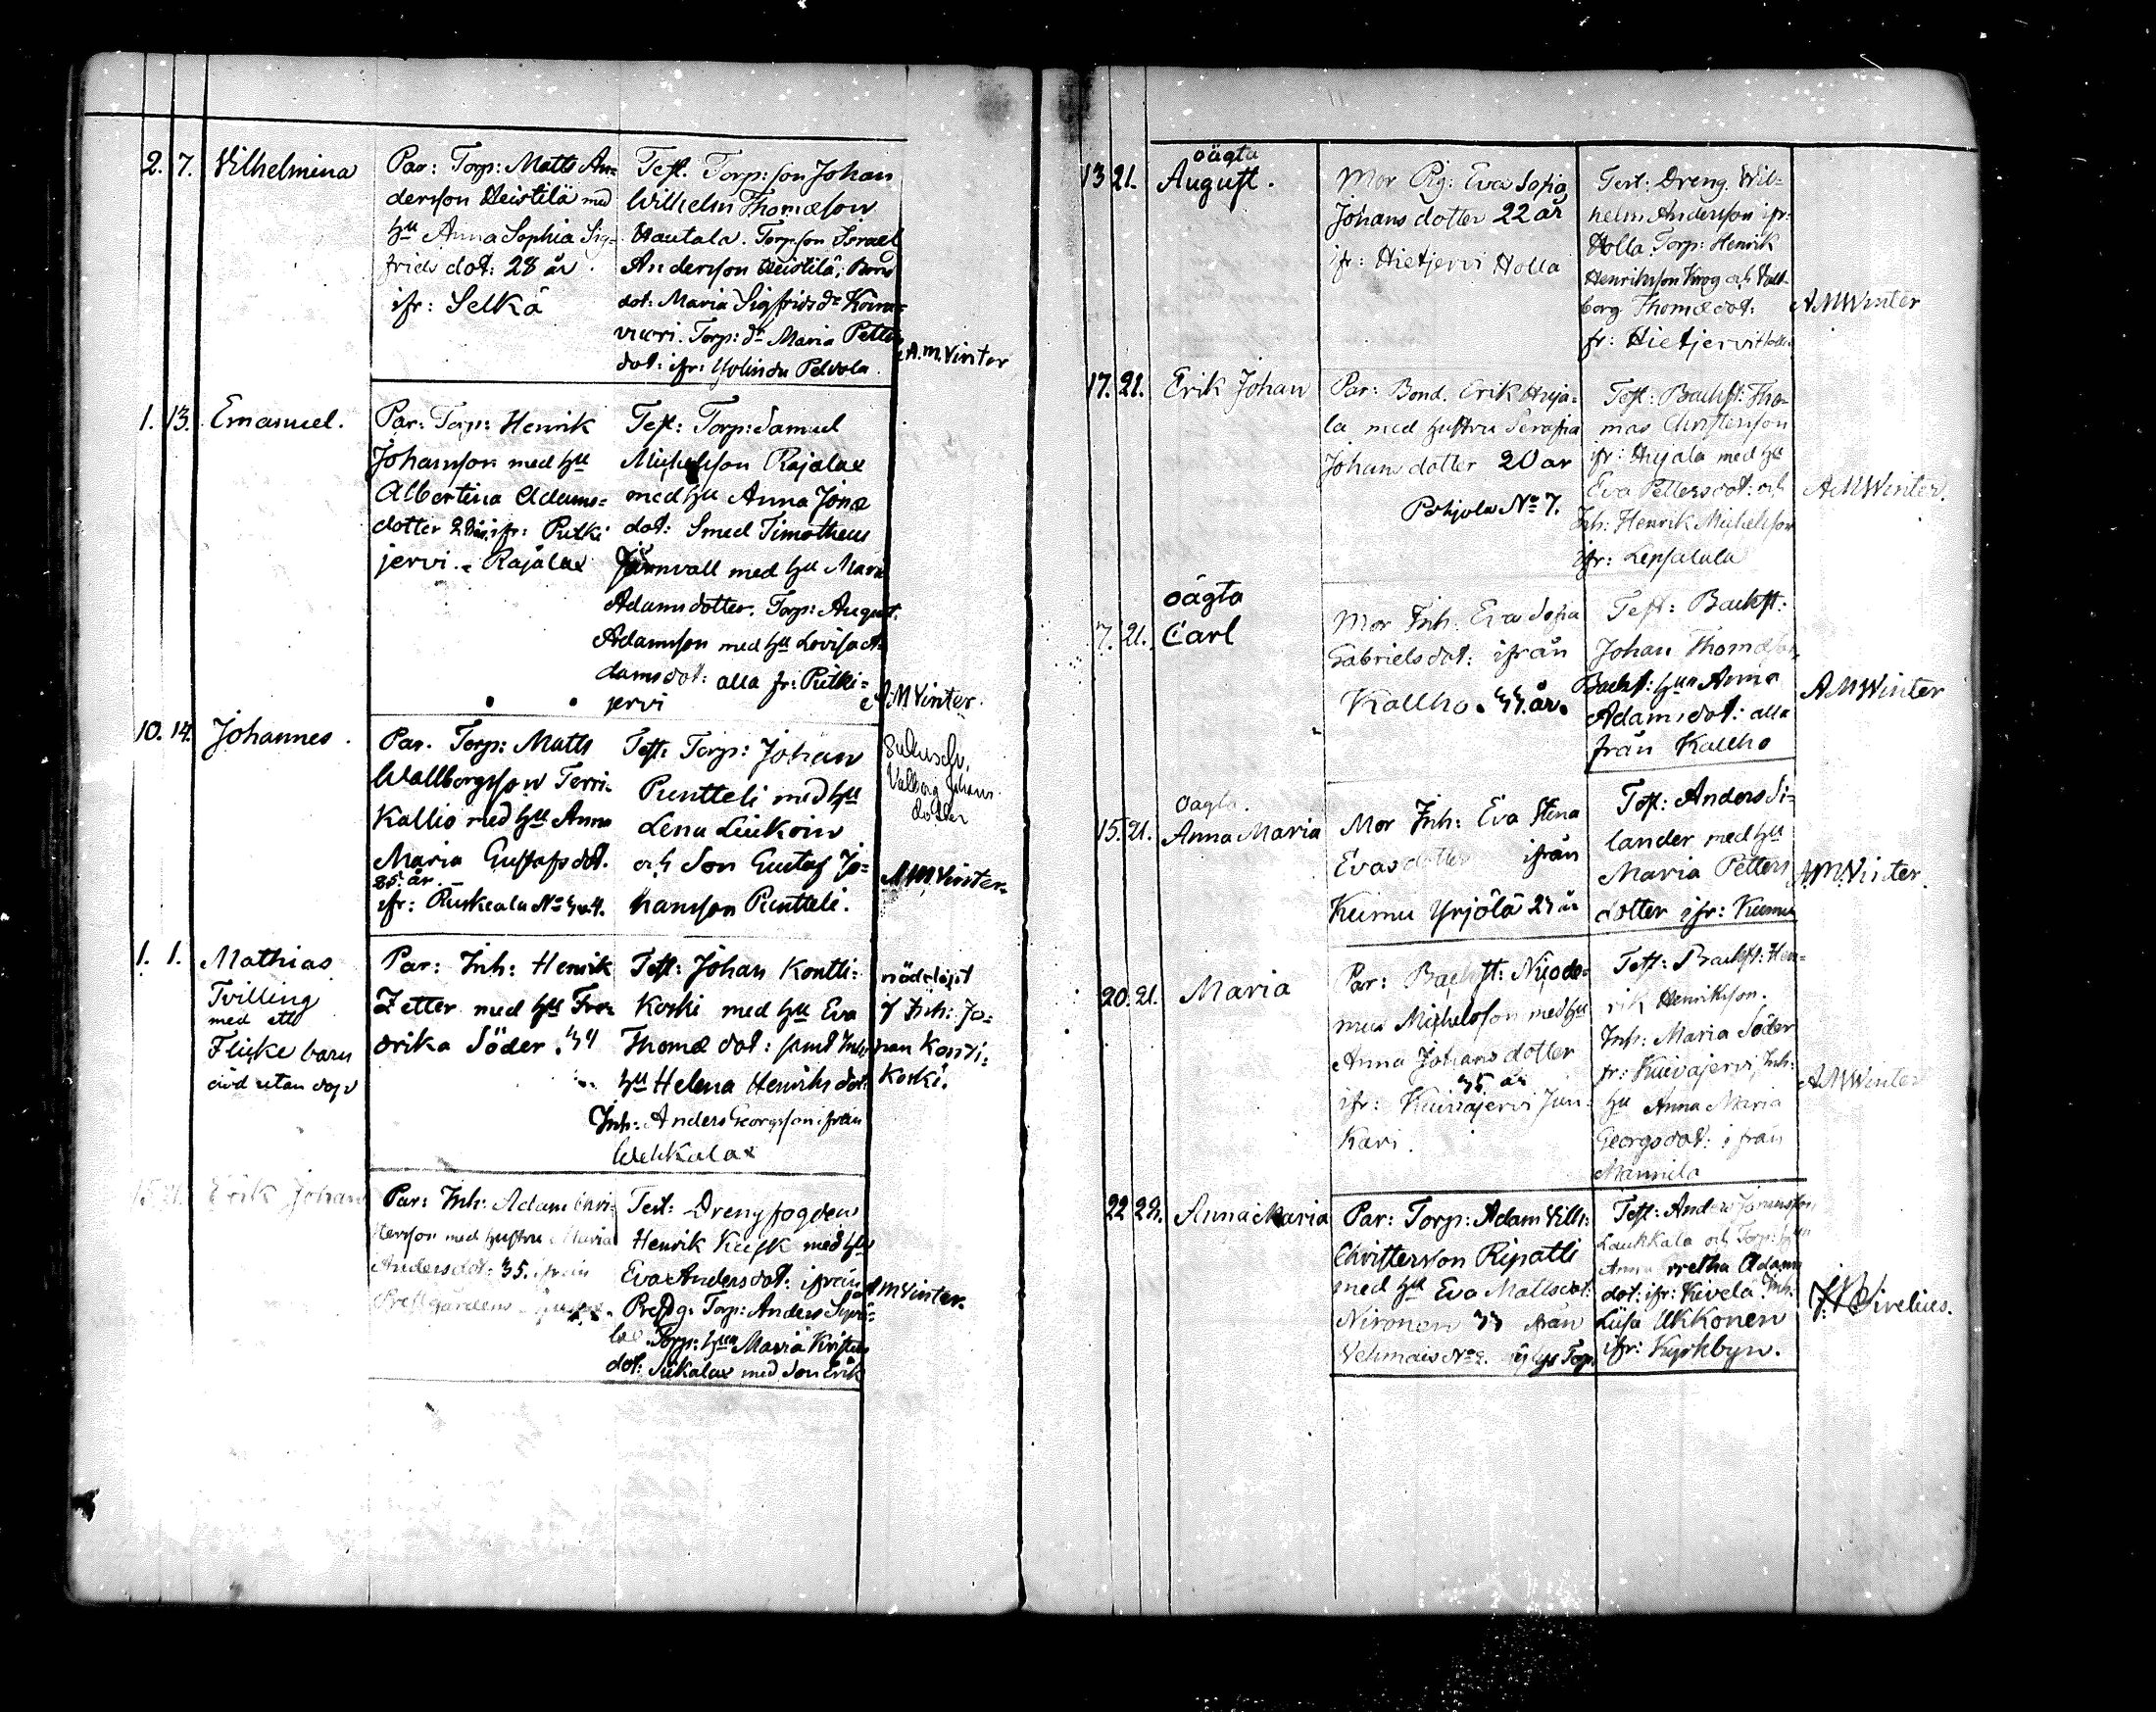 2. 7. Vilhelmina
Par: Torp: Matts An=
dersson Heistilä med
hu Anna Sophia Sig=
frids dot: 28 år.
ifr: Selkä
Test. Torp: son Johan
Wilhelm Thomæson
Hautala. Torpson Israel
Andersson Heistilä, Bond
dot: Maria Sigfrids dr Koira=
vuori. Torp: dr Maria Petters
dot: ifr: Peldola.
A.M. Vinter
1. 13. Emanuel.
Par: Torp: Henrik
Johansson med hu
Albertina Adams=
dotter ifr: Putki
jervi. Rajalax
Test: Torp: Samuel
Michelsson Rajalax
med hu Anna Jonæ
dot: Smed Timotheus
Järnvall med hu Maria
Adamsdotter. Torp: August
Adamsson med hu Lovisa A=
damsdot: alla fr: Putki=
jervi
A M Vinter.
10. 14. Johannes.
Par. Torp: Matts
Wallborgsson Terri=
Kallio med hu Anna
Maria Gustafsdot.
25. år
ifr: Ruskeala No
Test: Torp: Johan
Puntteli med hu
Lena Liukoin
och Son Gustaf Jo=
hansson Puntteli.
Valborg Johans
dotter
A M Vinter.
1. 1. Mathias
Tvilling
med ett
Flicke barn
död utan dop
Par: Inh: Henrik
Zetter med hu Fre=
drika Söder. 34
Test: Johan Kontti=
Koski med hu Eva
Thomæ dot: samt Inh:
hu Helena Henriks dot:
Inh: Anders Georgsson ifrån
Wehkalax
nöddöpt
af Inh: Jo=
han Konti=
koski.
15. 21. Erik Johan
Par: Inh: Adam Chri=
stersson med hustru Maria
Andersdot: 35. ifrån
Prestgårdens
Test: Drengfogden
Henrik Kusk med hu
Eva Andersdot: ifrån
Prestg. Torp: Anders
Torp: hun Maria Kristers
dot: Siikalax med Son Erik
A M Vinter.
13 21. oägta
August.
Mor Pig: Eva Sofia
Johans dotter 22 år
ifr: Hietjervi Holla
Test: Dreng. Wil=
helm Andersson ifr:
Holla. Torp: Henrik
Henriksson Krog och Vall=
borg Thomædot:
fr: Hietjervi Holla
A M Winter
17. 21. Erik Johan
Par: Bond. Erik Huja=
la med hustru Serafia
Johans dotter 20 år
Pohjola No 7.
Test: Backst: Tho=
mas Christersson
ifr: Hujala med hu
Eva Pettersdot: och
Inh: Henrik Michelsson
ifr: Lensalala
A M Winter.
oägta
7. 21. Carl
Mor Inh. Eva Sofia
Gabriels dot: ifrån
Kallho. 44. år.
Test: Backst:
Johan Thomæson,
Backst: hun Anna
Adamsdot: alla
från Kallho
A M Winter
oägta.
15. 21. Anna Maria
Mor Inh: Eva Stina
Evasdotter ifrån
Kumu Yrjölä 27 år
Test: Anders Si=
lander med hu
Maria Petters
dotter ifr: Kumu
A.M. Vinter.
20. 21. Maria
Par: Backst: Nicode=
mus Michelsson med hu
Anna Johansdotter
35 år
ifr: Kuivajervi Jun=
kari.
Test: Backst: Hen=
rik Henriksson.
Inh: Maria Söder
fr: Kuivajervi, Inh:
hu Anna Maria
Georgsdot: ifrån
Mannila
A M Winter
22 29. Anna Maria
Par: Torp: Adam Vilh:
Christersson Ripatti
med hu Eva Mattsdot:
Nironen 33 från
Vehmais No 2. Torp.
Test: Anders
Laukkala och Torp: hun
Anna Gretha Adams
dot: ifr: Kivelä. Inh.
Liisa Ukkonen
ifr: Kyrkbyn.
Sirelius.